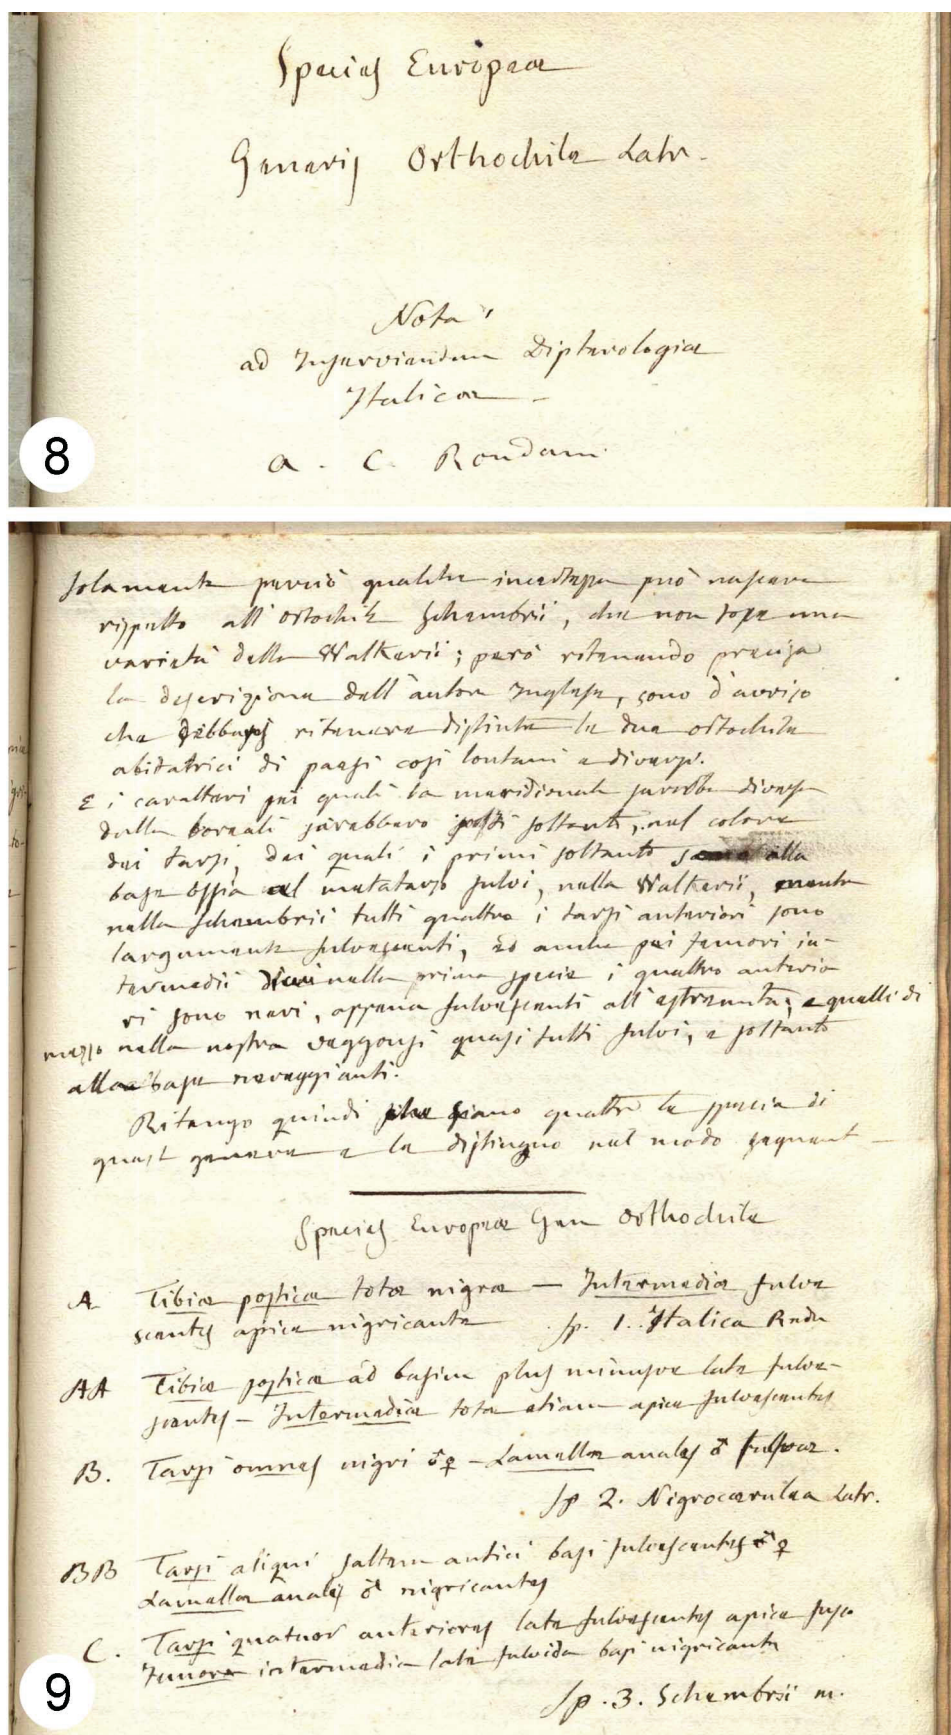 Species Europeae
Generis Orthochile Latr.
Nota
ad Inserviendum Dipterologiae
Italicae
a. C. Rondani
8
solamente perciò qualche incertezza può nascere
rispetto all'ortochile Schembrii, che non sope una
varietà della Walkerii; però ritenendo precisa
la descrizione dell'autore Inglese, sono d'avviso
che debbansi ritenere distinte le due ortochile
abitatrici di paesi così lontani e diversi.
E i caratteri pei quali la meridionale sarebbe diversa
dalla boreali sarebbero posti soltanto, nel colore
dei tarsi, dei quali i primi soltanto sono alla
base ossia al metatarso fulvi, nella Walkerii, mentre
nella Schembrii tutti quattro i tarsi anteriori sono
largamente fulvescenti, ed anche pei femori in-
termedii nella prima specie i quattro anterio
ri sono neri, appena fulvescenti all'estremità; e quelli di
mezzo nella nostra veggonsi quasi tutti fulvi, e soltanto
alla base nereggianti.
Ritengo quindi che siano quattro le specie di
quest genere e le distinguo nel modo seguent
Species Europeae Gen Orthochile
A Tibiae posticae totae nigrae — Intermediae fulve
scentes apice nigricante sp. 1. Italica Rndn
AA Tibiae posticae ad basim plus minusve late fulve-
scentes — Intermediae totae etiam apice fulvescentes
B. Tarsi omnes nigri ♂♀ — Lamellae anales ♂ fulvae.
Sp 2. Nigrocaerulea Latr.
BB Tarsi aliqui saltem antici basi fulvescentes ♂♀
Lamellae anales ♂ nigricantes
C. Tarsi quatuor anteriores late fulvescentes apice fusco
Femora intermedia late fulvida basi nigricante
Sp. 3. Schembrii m.
9